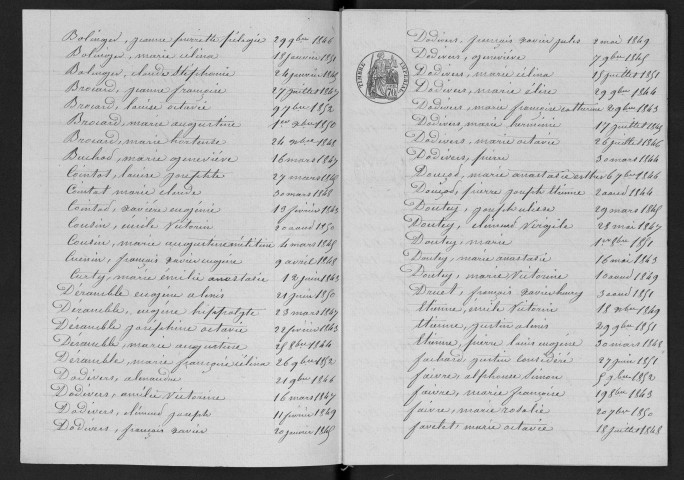 Bolinger, jeanne pierrette pélagie 29 9bre 1846
Bolinger, marie élina 18 janvier 1851
Bolinger, claude Stéphanie 24 janvier 1848
Broiard, jeanne françoise 27 juillet 1847
Broiard, louise octavie 9 7bre 1852
Broiard, marie augustine 1er xbre 1850
Broiard, marie hortense 24 1848
Buchod, marie geneviève 16 mars 1847
Cointot, louise josephte 27 mars 1848
Cointot marie claude 30 mars 1848
Cointot, xavière eugénie 13 février 1843
Cousin, émile Victorin 20 aout 1850
Cousin, marie augustine 4 mars 1848
Cuenin, françois xavier eugène 9 avril 1848
Curty, marie émilie anastasie 12 juin 1843
Déramble eugène alexis 21 juin 1850
Déramble, eugène hippolyte 23 mars 1847
Déramble joséphine octavie 22 février 1843
Déramble, marie augustine 25 8bre 1844
Déramble, marie françoise élina 26 9bre 1852
Dodivers, almandine 21 9bre 1846
Dodivers, amélie Victorine 16 mars 1847
Dodivers, édmond joseph 11 février 1849
Dodivers, françois xavier 20 janvier 1845
TIMBRE IMPERIAL
Dodivers, françois xavier jules 2 mai 1849
Dodivers, geneviève 7 9bre 1845
Dodivers, marie élina 15 juillet 1851
Dodivers, marie élise 29 9bre 1844
Dodivers, marie françoise catherine 29bre 1843
Dodivers, marie herminie 17 juillet 1848
Dodivers, marie octavie 26 juillet 1846
Dodivers, pierre 3 mars 1844
Doucod, marie anastasie 6 7bre 1846
Doucod, pierre joseph étienne 2 aout 1844
Doutey, joseph ulisse 29 mars 1845
Doutey, édmond Virgile 23 mai 1847
Doutey, marie 1er 9bre 1851
Doutey, marie anastasie 16 mai 1843
Doutey, marie Victorine 10 aout 1849
Druet, françois xavier 3 aout 1851
Etienne, émile Victorin 18 xbre 1849
Etienne, justin alexis 29 9bre 1851
Etienne, pierre louis eugène 30 mars 1848
fachard justin considéré 27 juin 1851
faivre, alphonse Simon 5 9bre 1852
faivre, marie françoise 19 8bre 1843
faivre, marie rosalie 20 7bre 1850
favelet, marie octavie 18 juillet 1848